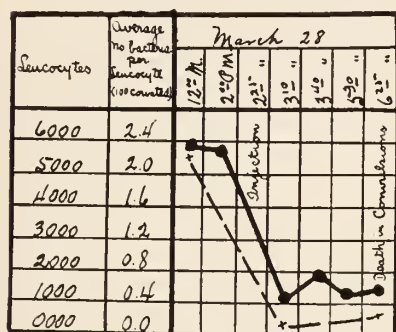 Leucocytes
Average
No bacteria
per
Leucocyte
(100 counted)
March 28
12 00 M.
2 00 P.M.
2 25 "
3 10 "
3 40 "
5 30 "
6 25 "
6000 2.4
5000 2.0
4000 1.6
3000 1.2
2000 0.8
1000 0.4
0000 0.0
Injection
Death in Convulsions